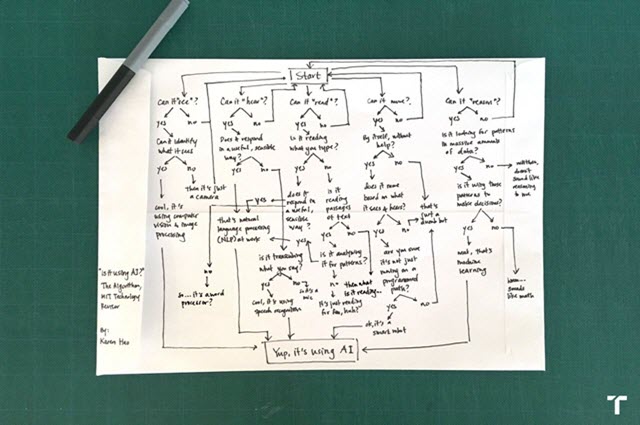 Start
Can it "see"?
yes
no
Can it identify
what it sees
yes
no
Then it's just
a camera
cool, it's
using computer
vision & image
processing
Can it "hear"?
yes
no
Does it respond
in a useful, sensible
way?
yes
no
yes
that's natural
language processing
(NLP) at work
is it transcribing
what you say?
yes
no
cool, it's using
speech recognition
Can it "read"?
yes
no
Is it reading
what you type?
yes
no
does it
respond in
a useful,
sensible
way?
yes
no
so... it's a word
processor?
is it
reading
passages
of text
yes
no
is it analyzing
it for patterns?
yes
no
It's just reading
for fun, huh?
then what
is it reading...
Can it move?
yes
no
By itself, without
help?
yes
no
does it move
based on what
it sees & hears?
yes
no
that's
just a
dumb bot
are you sure
it's not just
moving on a
programmed
path?
yes
no
ok, it's a
smart robot
Can it "reason"?
yes
no
Is it looking for patterns
in massive amounts
of data?
yes
no
well then,
doesn't
sound like
reasoning
to me
is it using those
patterns to
make decisions?
yes
no
neat, that's
machine
learning
hmm...
sounds
like math
Yup, it's using AI
"is it using AI?"
The Algorithm,
MIT Technology
Review
By:
Karen Hao